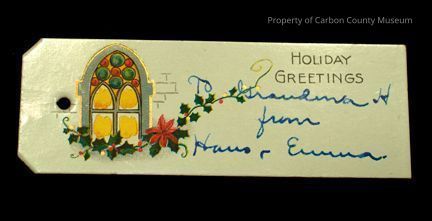 Property of Carbon County Museum
HOLIDAY
GREETINGS
To Grandma H
from
Hans & Emma.